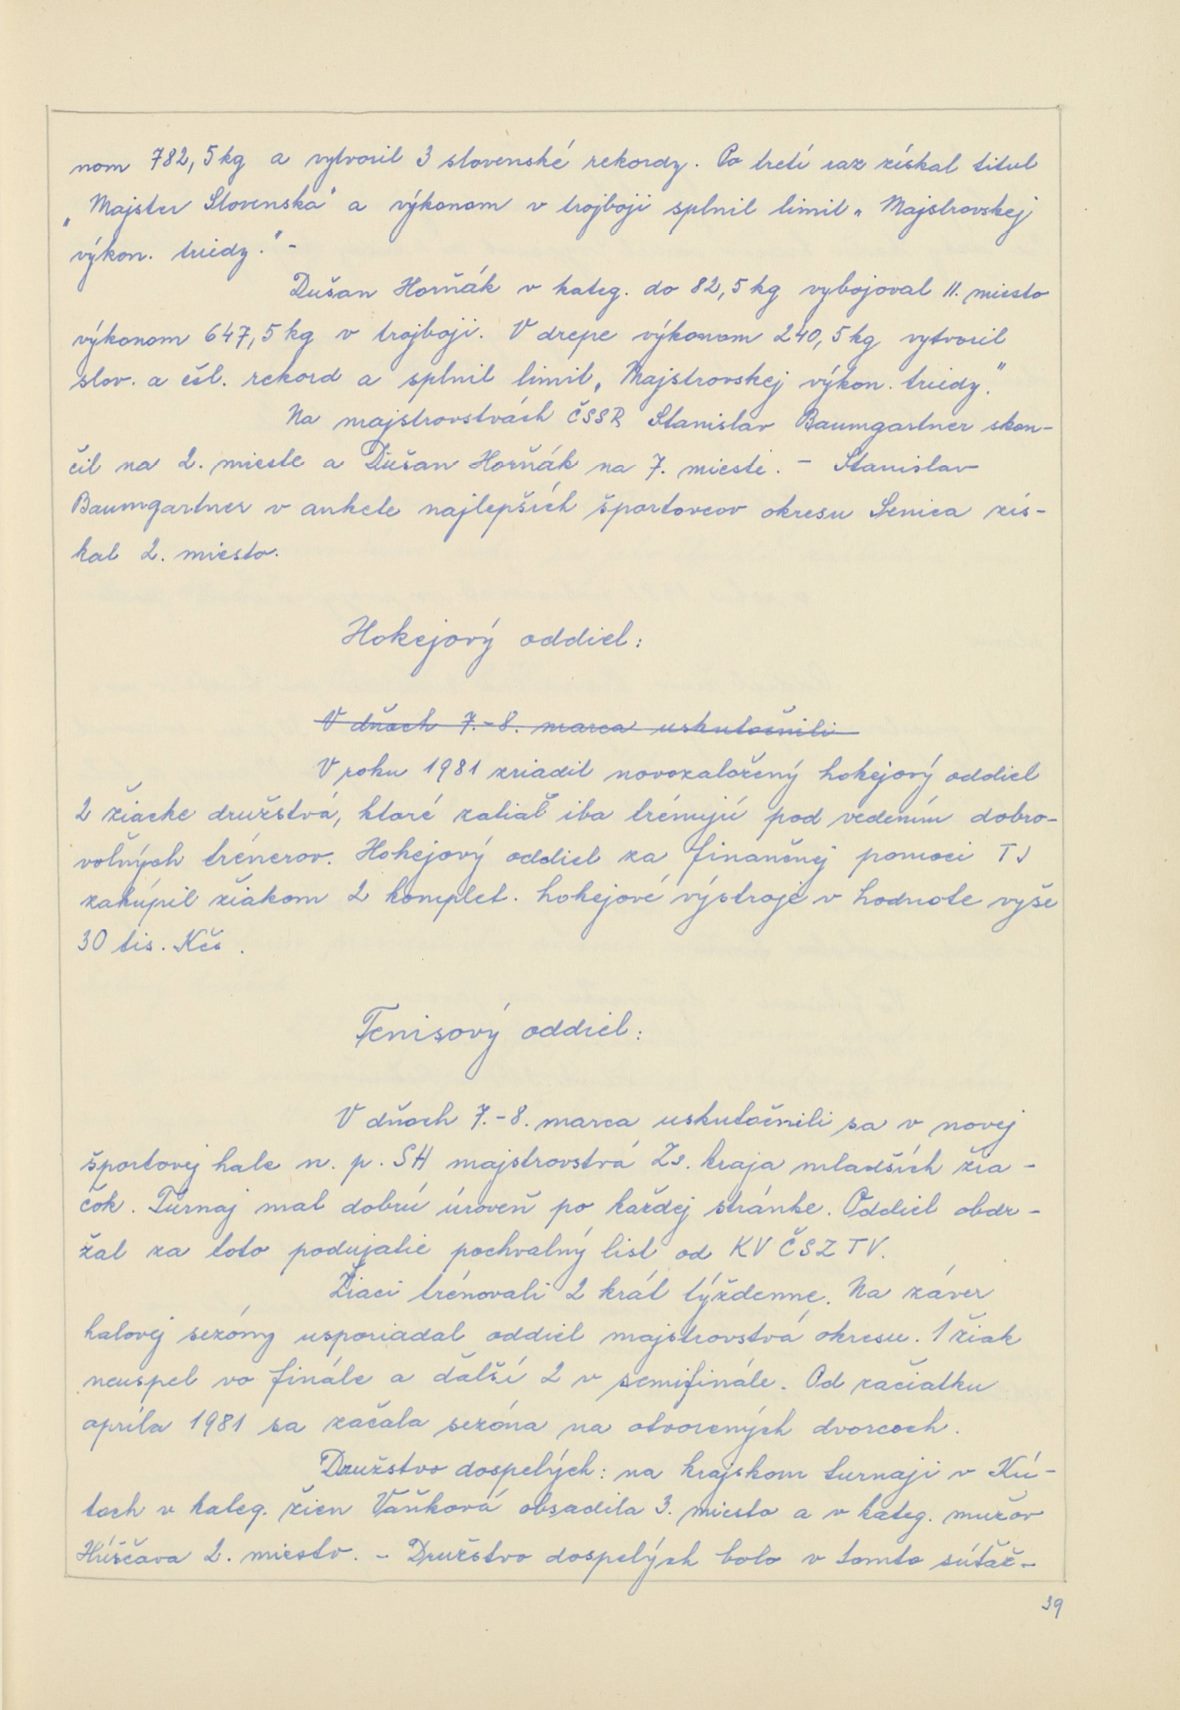 nom 782,5 kg a vytvoril 3 slovenské rekordy. Po tretí raz získal titul
„Majster Slovenska" a výkonom v trojboji splnil limit „Majstrovskej
výkon. triedy." -
Dušan Horňák v kateg. do 82,5 kg vybojoval II. miesto
výkonom 647,5 kg v trojboji. V drepe výkonom 240,5 kg vytvoril
slov. a čsl. rekord a splnil limit „Majstrovskej výkon. triedy."
Na majstrovstvách ČSSR Stanislav Baumgartner skon-
čil na 2. mieste a Dušan Horňák na 7. mieste. - Stanislav
Baumgartner v ankete najlepších športovcov okresu Senica zís-
kal 2. miesto.
Hokejový oddiel:
V dňoch 7.-8. marca uskutočnili
V roku 1981 zriadil novozaložený hokejový oddiel
2 žiacke družstvá, ktoré zatiaľ iba trénujú pod vedením dobro-
voľných trénerov. Hokejový oddiel za finančnej pomoci TJ
zakúpil žiakom 2 komplet. hokejové výstroje v hodnote vyše
30 tis. Kčs.
Tenisový oddiel:
V dňoch 7.-8. marca uskutočnili sa v novej
športovej hale n. p. SH majstrovstvá Zs. kraja mladších žia-
čok. Turnaj mal dobrú úroveň po každej stránke. Oddiel obdr-
žal za toto podujatie pochvalný list od KV ČSZTV.
Žiaci trénovali 2 krát týždenne. Na záver
halovej sezóny usporiadal oddiel majstrovstvá okresu. 1 žiak
neuspel vo finále a ďalší 2 v semifinále. Od začiatku
apríla 1981 sa začala sezóna na otvorených dvorcoch.
Družstvo dospelých: na krajskom turnaji v Kú-
toch v kateg. žien Vaňková obsadila 3. miesto a v kateg. mužov
Húščava 2. miesto. - Družstvo dospelých bolo v tomto súťaž-
39